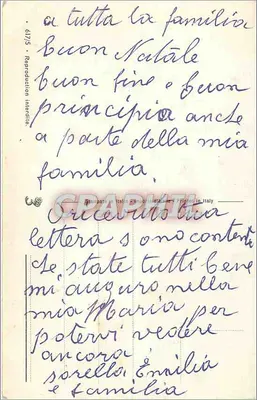 a tutta la familia
buon Natale
buon fine e buon
principio anche
a parte della mia
familia.
Ricevuto tua
lettera sono contenti
che state tutti bene
mi auguro nella
mia Maria per
potervi vedere
ancora
sorella Emilia
e familia
617/S - Reproduction interdite